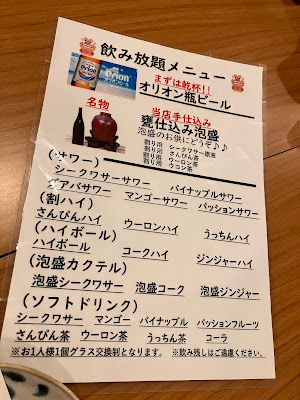 飲み放題メニュー
まずは乾杯!!
Orion
オリオン瓶ビール
名物
当店手仕込み
甕仕込み泡盛
泡盛のお供にどうぞ♪♪
割り用 シークワサー原液
割り用 さんぴん茶
割り用 ウーロン茶
割り用 ウコン茶
(サワー)
シークワサーサワー パイナップルサワー
グアバサワー マンゴーサワー パッションサワー
(割ハイ)
さんぴんハイ ウーロンハイ うっちんハイ
(ハイボール)
ハイボール コークハイ ジンジャーハイ
(泡盛カクテル)
泡盛シークワサー 泡盛コーク 泡盛ジンジャー
(ソフトドリンク)
シークワサー マンゴー パイナップル パッションフルーツ
さんぴん茶 ウーロン茶 うっちん茶 コーラ
※お1人様1個グラス交換制となります。 ※飲み残しはご遠慮ください。